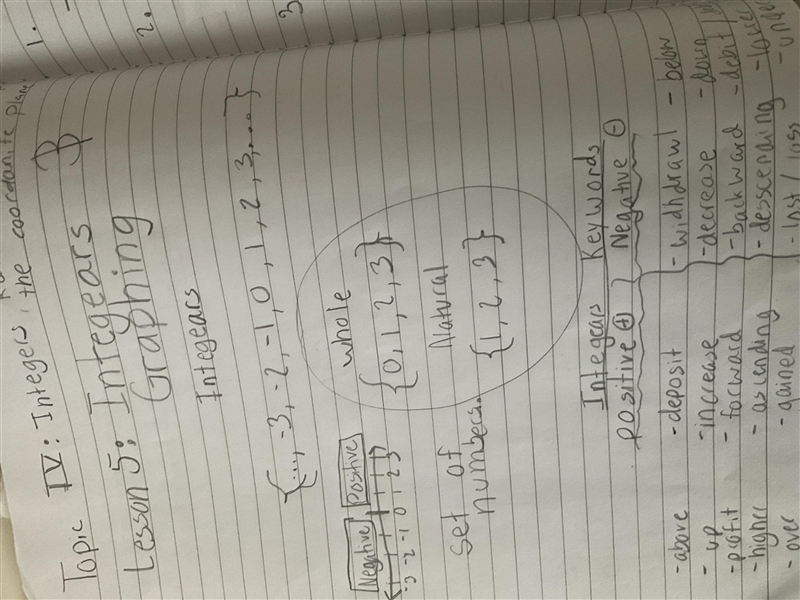 Topic IV: Integers, the coordanite plane
Lesson 5: Integears
Graphing
Integears
{..., -3, -2, -1, 0, 1, 2, 3, ...}
Negative Positive
-3 -2 -1 0 1 2 3
whole
{0, 1, 2, 3}
Natural
{1, 2, 3}
set of
numbers.
Integears Keywords
positive + Negative -
- above - deposit - widhdrawl - below
- up - increase - decrease - down
- profit - forward - backward - debit
- higher - ascending - desscending - lower
- over - gained - lost / loss - under
1.
2.
3